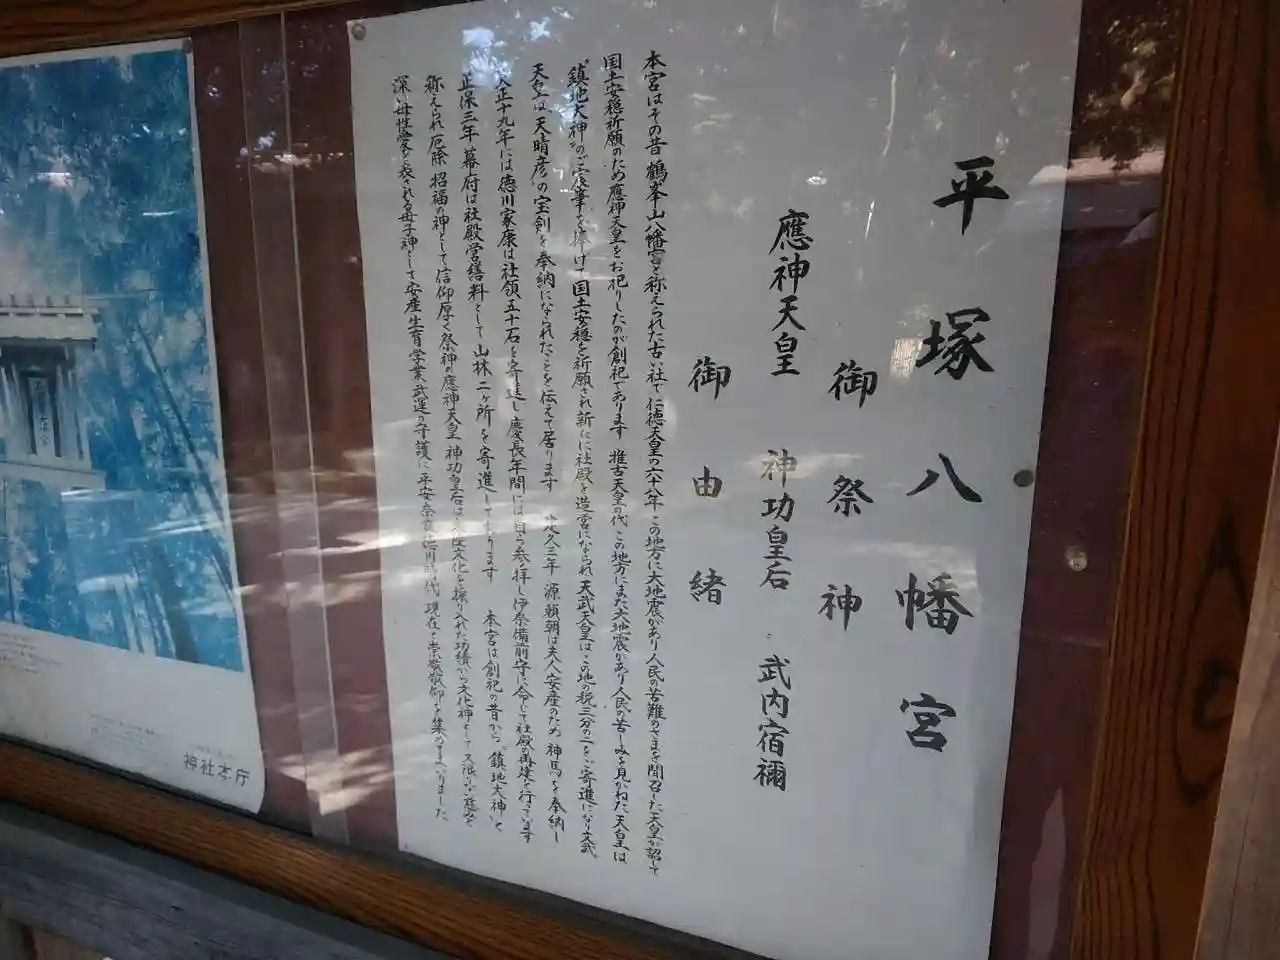 平塚八幡宮
御祭神
應神天皇 神功皇后 武内宿禰
御由緒
本宮はその昔鶴峯山八幡宮と称えられた古い社で仁徳天皇の六十八年 この地方に大地震があり人民の苦難のさまを聞召した天皇が詔して
国土安穏祈願のため應神天皇をお祀りしたのが創祀であります 推古天皇の代 この地方にまた大地震があり人民の苦しみを見かねた天皇は
"鎮地大神"のご宸筆を捧げて国土安穏を祈願され新たに社殿を造営になられ天武天皇はこの地の税三分の二をご寄進になり文武
天皇は、天晴彦の宝剣を奉納になられたことを伝えて居ります 建久三年 源頼朝は夫人安産のため 神馬を奉納し
天正十九年には徳川家康は社領五十石を寄進し慶長年間には自ら参拝し伊奈備前守に命じて社殿の再建を行っています
正保三年 幕府は社殿営繕料として山林二ヶ所を寄進してをります 本宮は創祀の昔から"鎮地大神"と
称えられ厄除 招福の神として信仰厚く祭神の應神天皇 神功皇后は文化を採り入れた功績から文化神として又
深い母性愛を表される母子神として安産生育学業武運の守護に 平安奈良徳川時代 現在と崇敬敬仰を集めまいりました
神社本庁